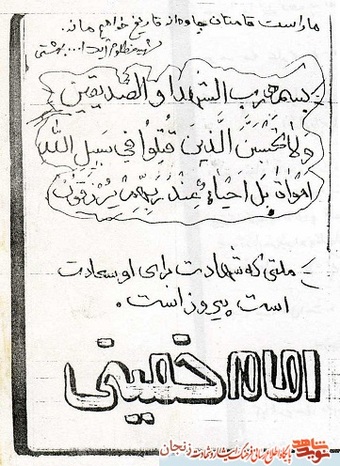 ما راست قامتان جاودانه تاریخ خواهیم ماند.
شهید مظلوم آیت ا... بهشتی
بسم رب الشهدا و الصدیقین
ولا تحسبن الذین قتلوا فی سبیل الله
امواتا بل احیاء عند ربهم یرزقون
ملتی که شهادت برای او سعادت
است پیروز است.
امام خمینی
نوید شاهد
زنجان